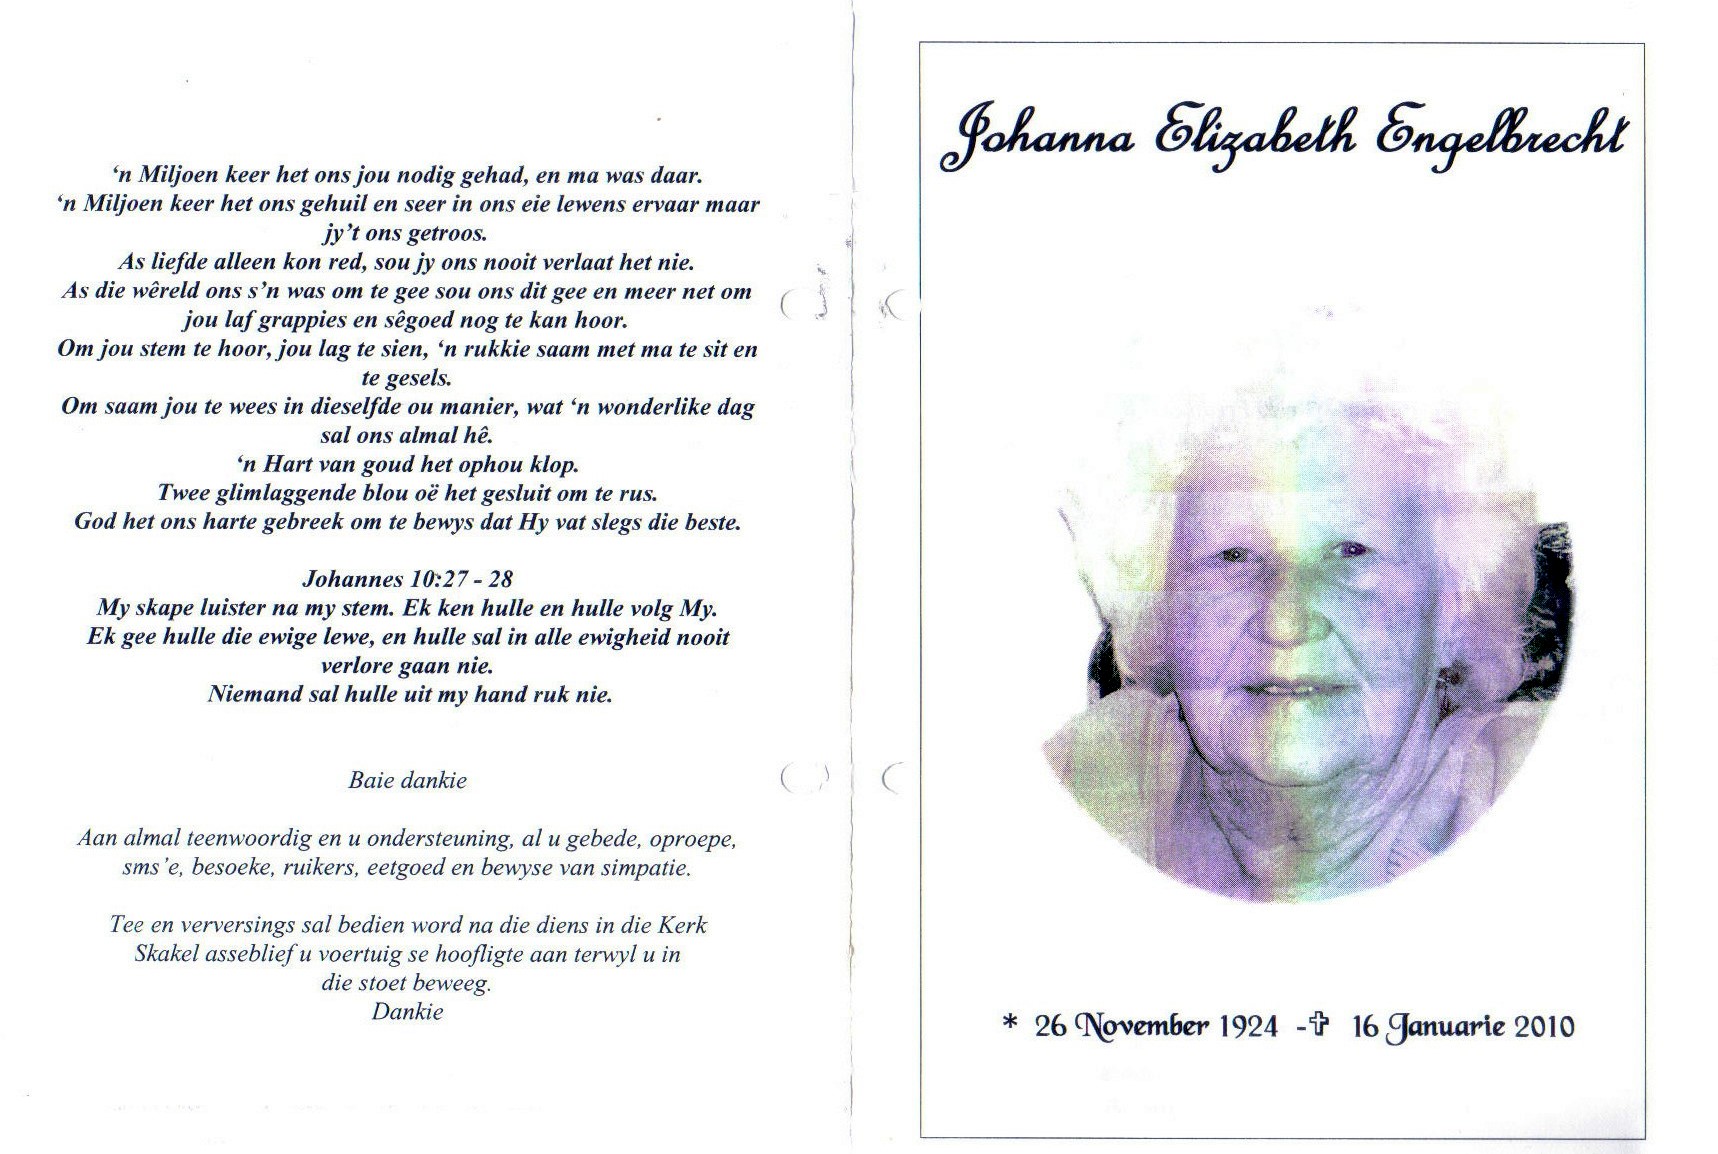 ‘n Miljoen keer het ons jou nodig gehad, en ma was daar.
‘n Miljoen keer het ons gehuil en seer in ons eie lewens ervaar maar
jy’t ons getroos.
As liefde alleen kon red, sou jy ons nooit verlaat het nie.
As die wêreld ons s’n was om te gee sou ons dit gee en meer net om
jou laf grappies en sêgoed nog te kan hoor.
Om jou stem te hoor, jou lag te sien, ‘n rukkie saam met ma te sit en
te gesels.
Om saam jou te wees in dieselfde ou manier, wat ‘n wonderlike dag
sal ons almal hê.
‘n Hart van goud het ophou klop.
Twee glimlaggende blou oë het gesluit om te rus.
God het ons harte gebreek om te bewys dat Hy vat slegs die beste.
Johannes 10:27 - 28
My skape luister na my stem. Ek ken hulle en hulle volg My.
Ek gee hulle die ewige lewe, en hulle sal in alle ewigheid nooit
verlore gaan nie.
Niemand sal hulle uit my hand ruk nie.
Baie dankie
Aan almal teenwoordig en u ondersteuning, al u gebede, oproepe,
sms’e, besoeke, ruikers, eetgoed en bewyse van simpatie.
Tee en verversings sal bedien word na die diens in die Kerk
Skakel asseblief u voertuig se hoofligte aan terwyl u in
die stoet beweeg.
Dankie
Johanna Elizabeth Engelbrecht
* 26 November 1924 -✞ 16 Januarie 2010